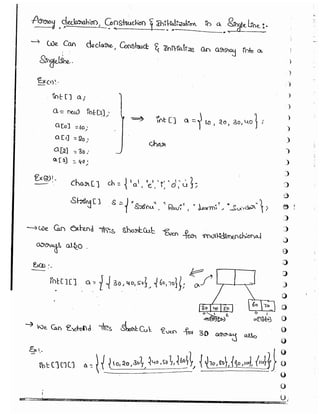 Array declaration, Construction & Initialization in a Single Line :-
→ We Can declare, Construct & Initialize an array into a
Single line.
Ex(1):
int[] a;
a = new int[3];
a[0] = 10;
a[1] = 20;
a[2] = 30;
a[3] = 40;
⇒ int[] a = { 10, 20, 30, 40 };
char
Ex(2):
char[] ch = { 'a', 'e', 'i', 'o', 'u' };
String[] s = { "Ravi", "Laxmi", "Sundar" };
→ We Can Extend this Shortcut Even for multidimensional
arrays also.
Ex(1):
int[][] a = { {30, 40, 50}, {60, 70} };
a
→ We Can Extend this Short Cut Even for 3D array also
Ex:-
int[][][] a = { { {10, 20, 30}, {40, 50}, {60} }, { {70, 80}, {90, 100}, {110} } }